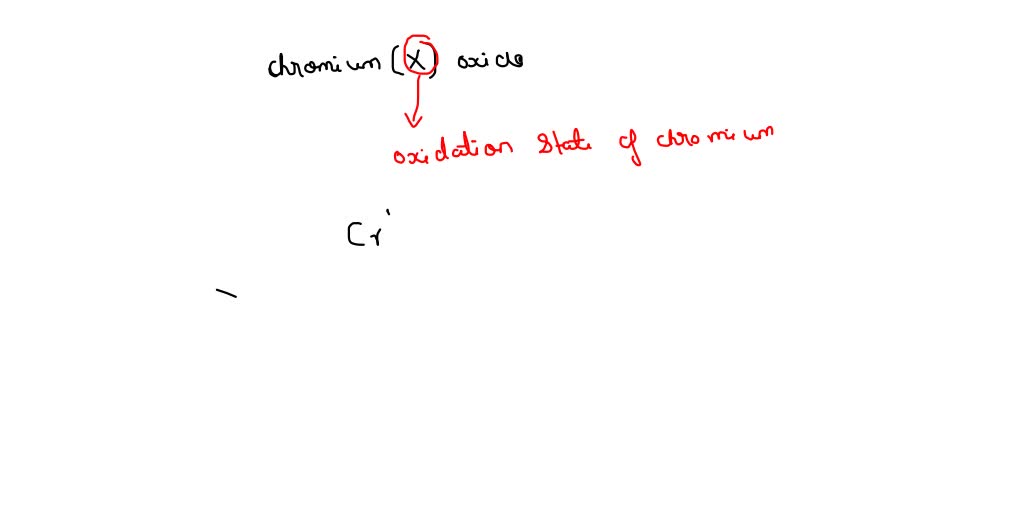 chromium (X) oxide
oxidation state of chromium
Cr